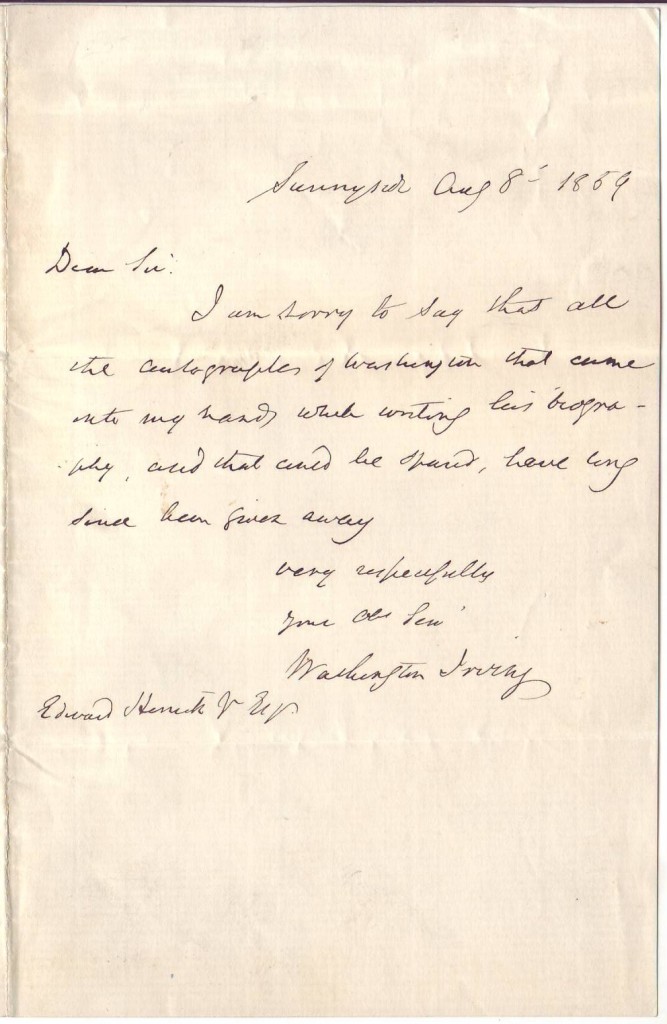 Sunnyside Aug 8th 1859
Dear Sir.
I am sorry to say that all
the autographs of Washington that came
into my hands while writing his biogra-
phy, and that could be spared, have long
since been given away
very respectfully
your obt Servt
Washington Irving
Edward Herrick Jr Esqr